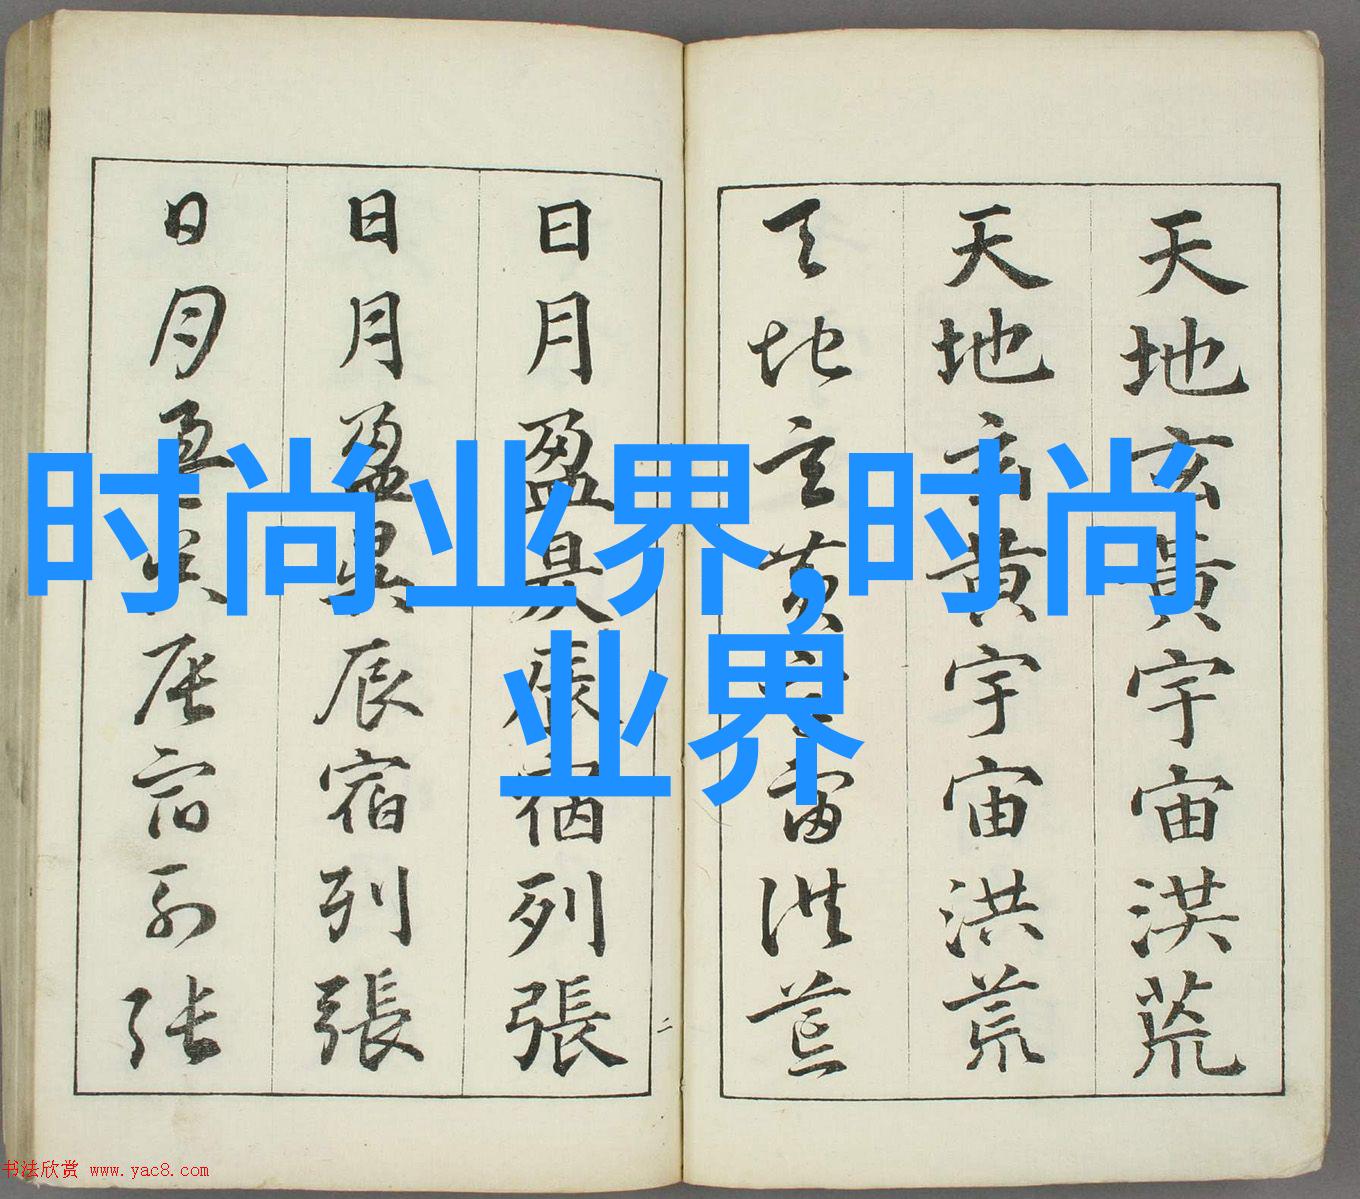 天地玄黃宇宙洪荒
天地玄黃宇宙洪荒
天地玄黃宇宙洪荒
二
日月盈昃辰宿列張
日月盈昃辰宿列張
日月盈昃辰宿列張
时尚业界,时尚
业界
书法欣赏 www.yac8.com